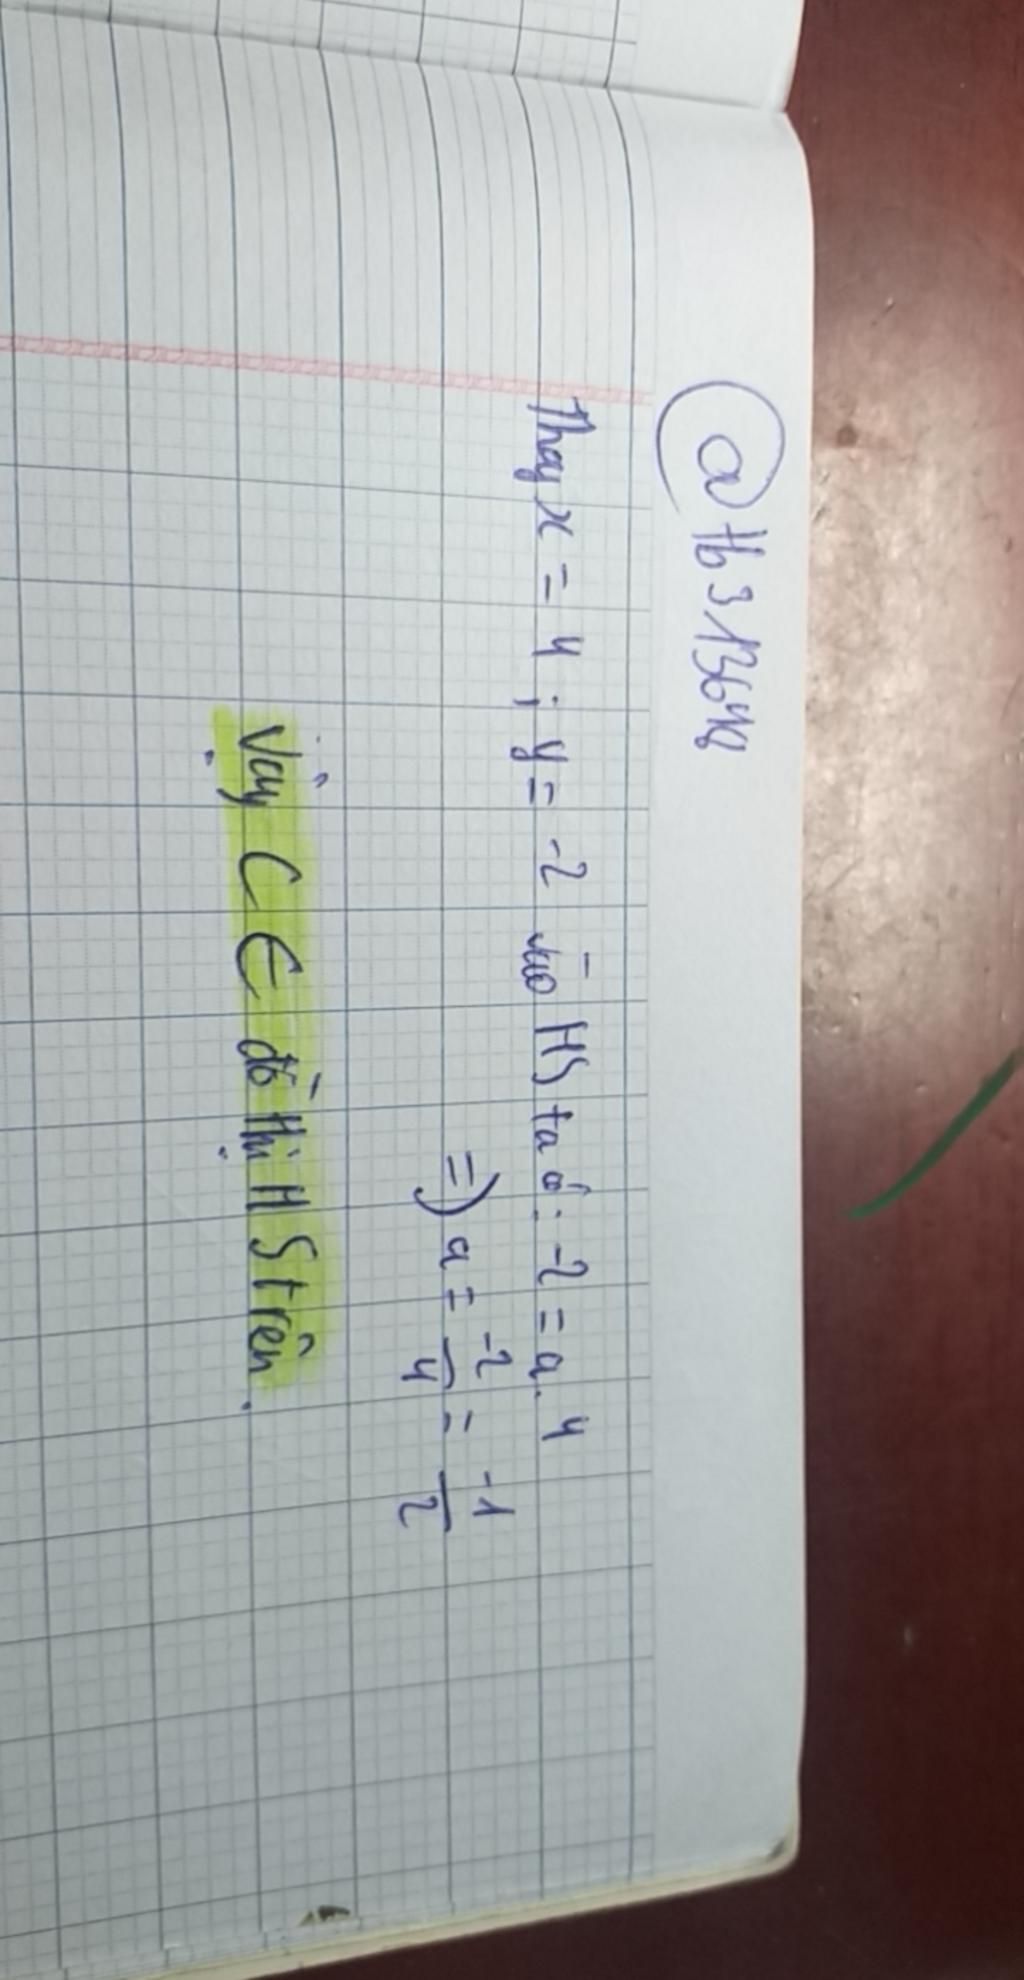 Thay x = 4 ; y = -2 vào HS ta có: -2 = a. 4
=) a = -2/4 = -1/2
Vậy C ∈ đồ thị HS trên.